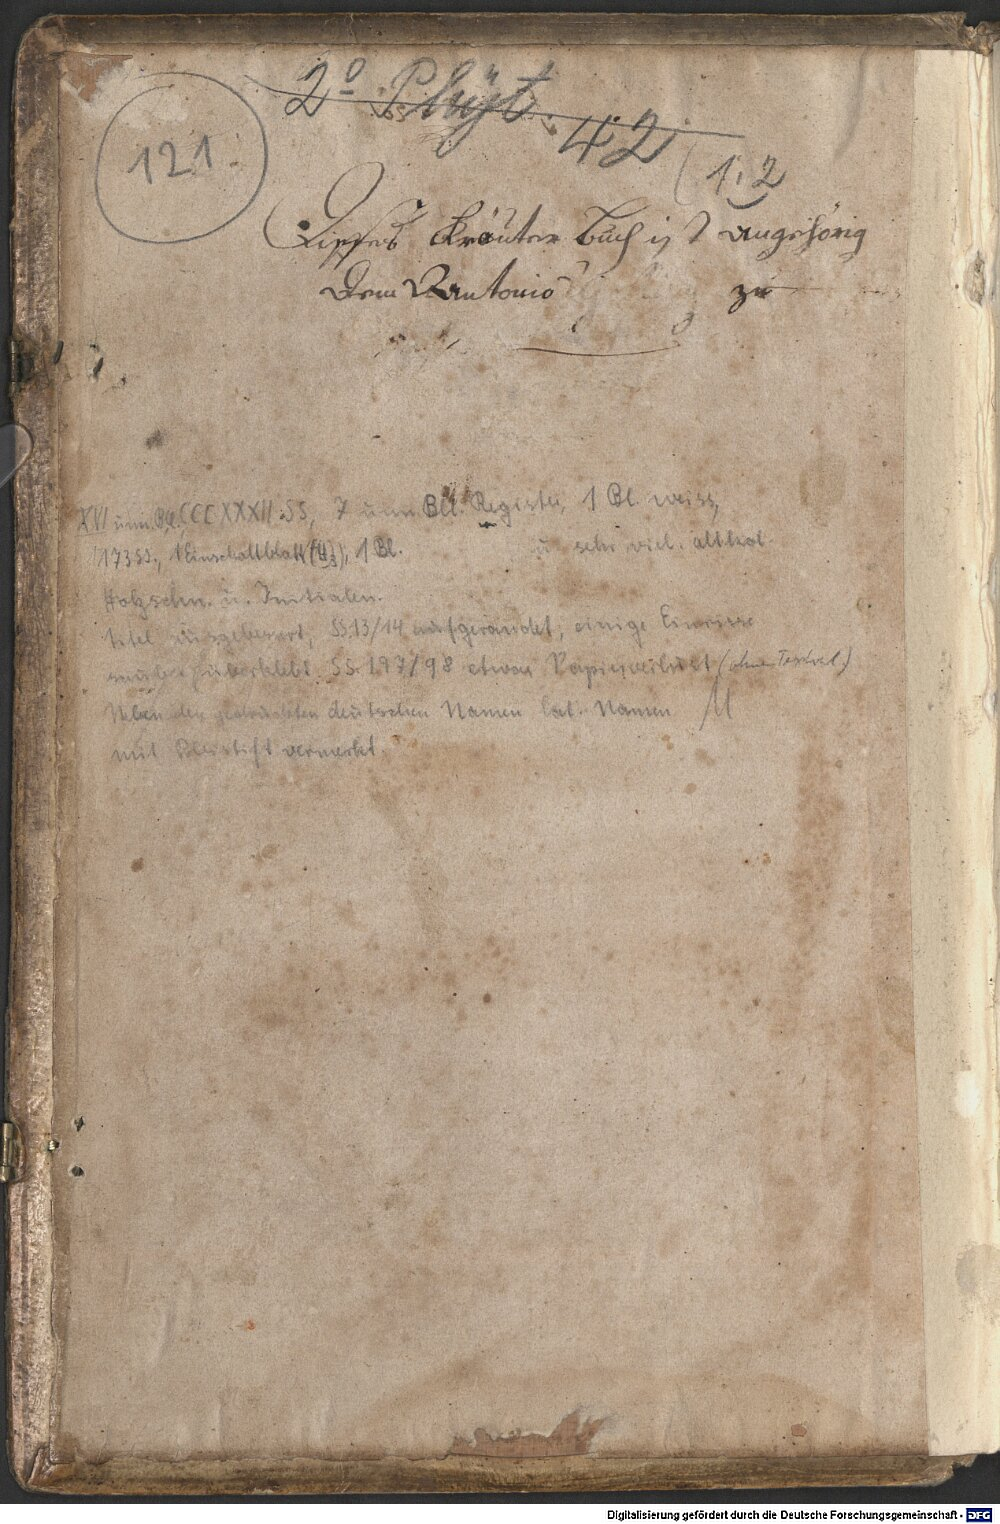 121
2° Phyt. 42
(1.2
Disses Kräuter Buch ist angehörig
dem Antonio zu
XVI unn. Bl., CCCXXXII SS, 7 unn Bll. Register, 1 Bl. weiss,
173 SS., 1 Einschaltblatt, 1 Bl. u. sehr viel. altkol.
Holzschn. u. Initialen.
Titel ausgebessert, SS. 13/14 aufgerändet, einige Einrisse
sauber überklebt. SS. 197/98 etwas Papierverlust (ohne Textverl.)
Neben den gedruckten deutschen Namen lat. Namen
mit Bleistift vermerkt.
Digitalisierung gefördert durch die Deutsche Forschungsgemeinschaft - DFG